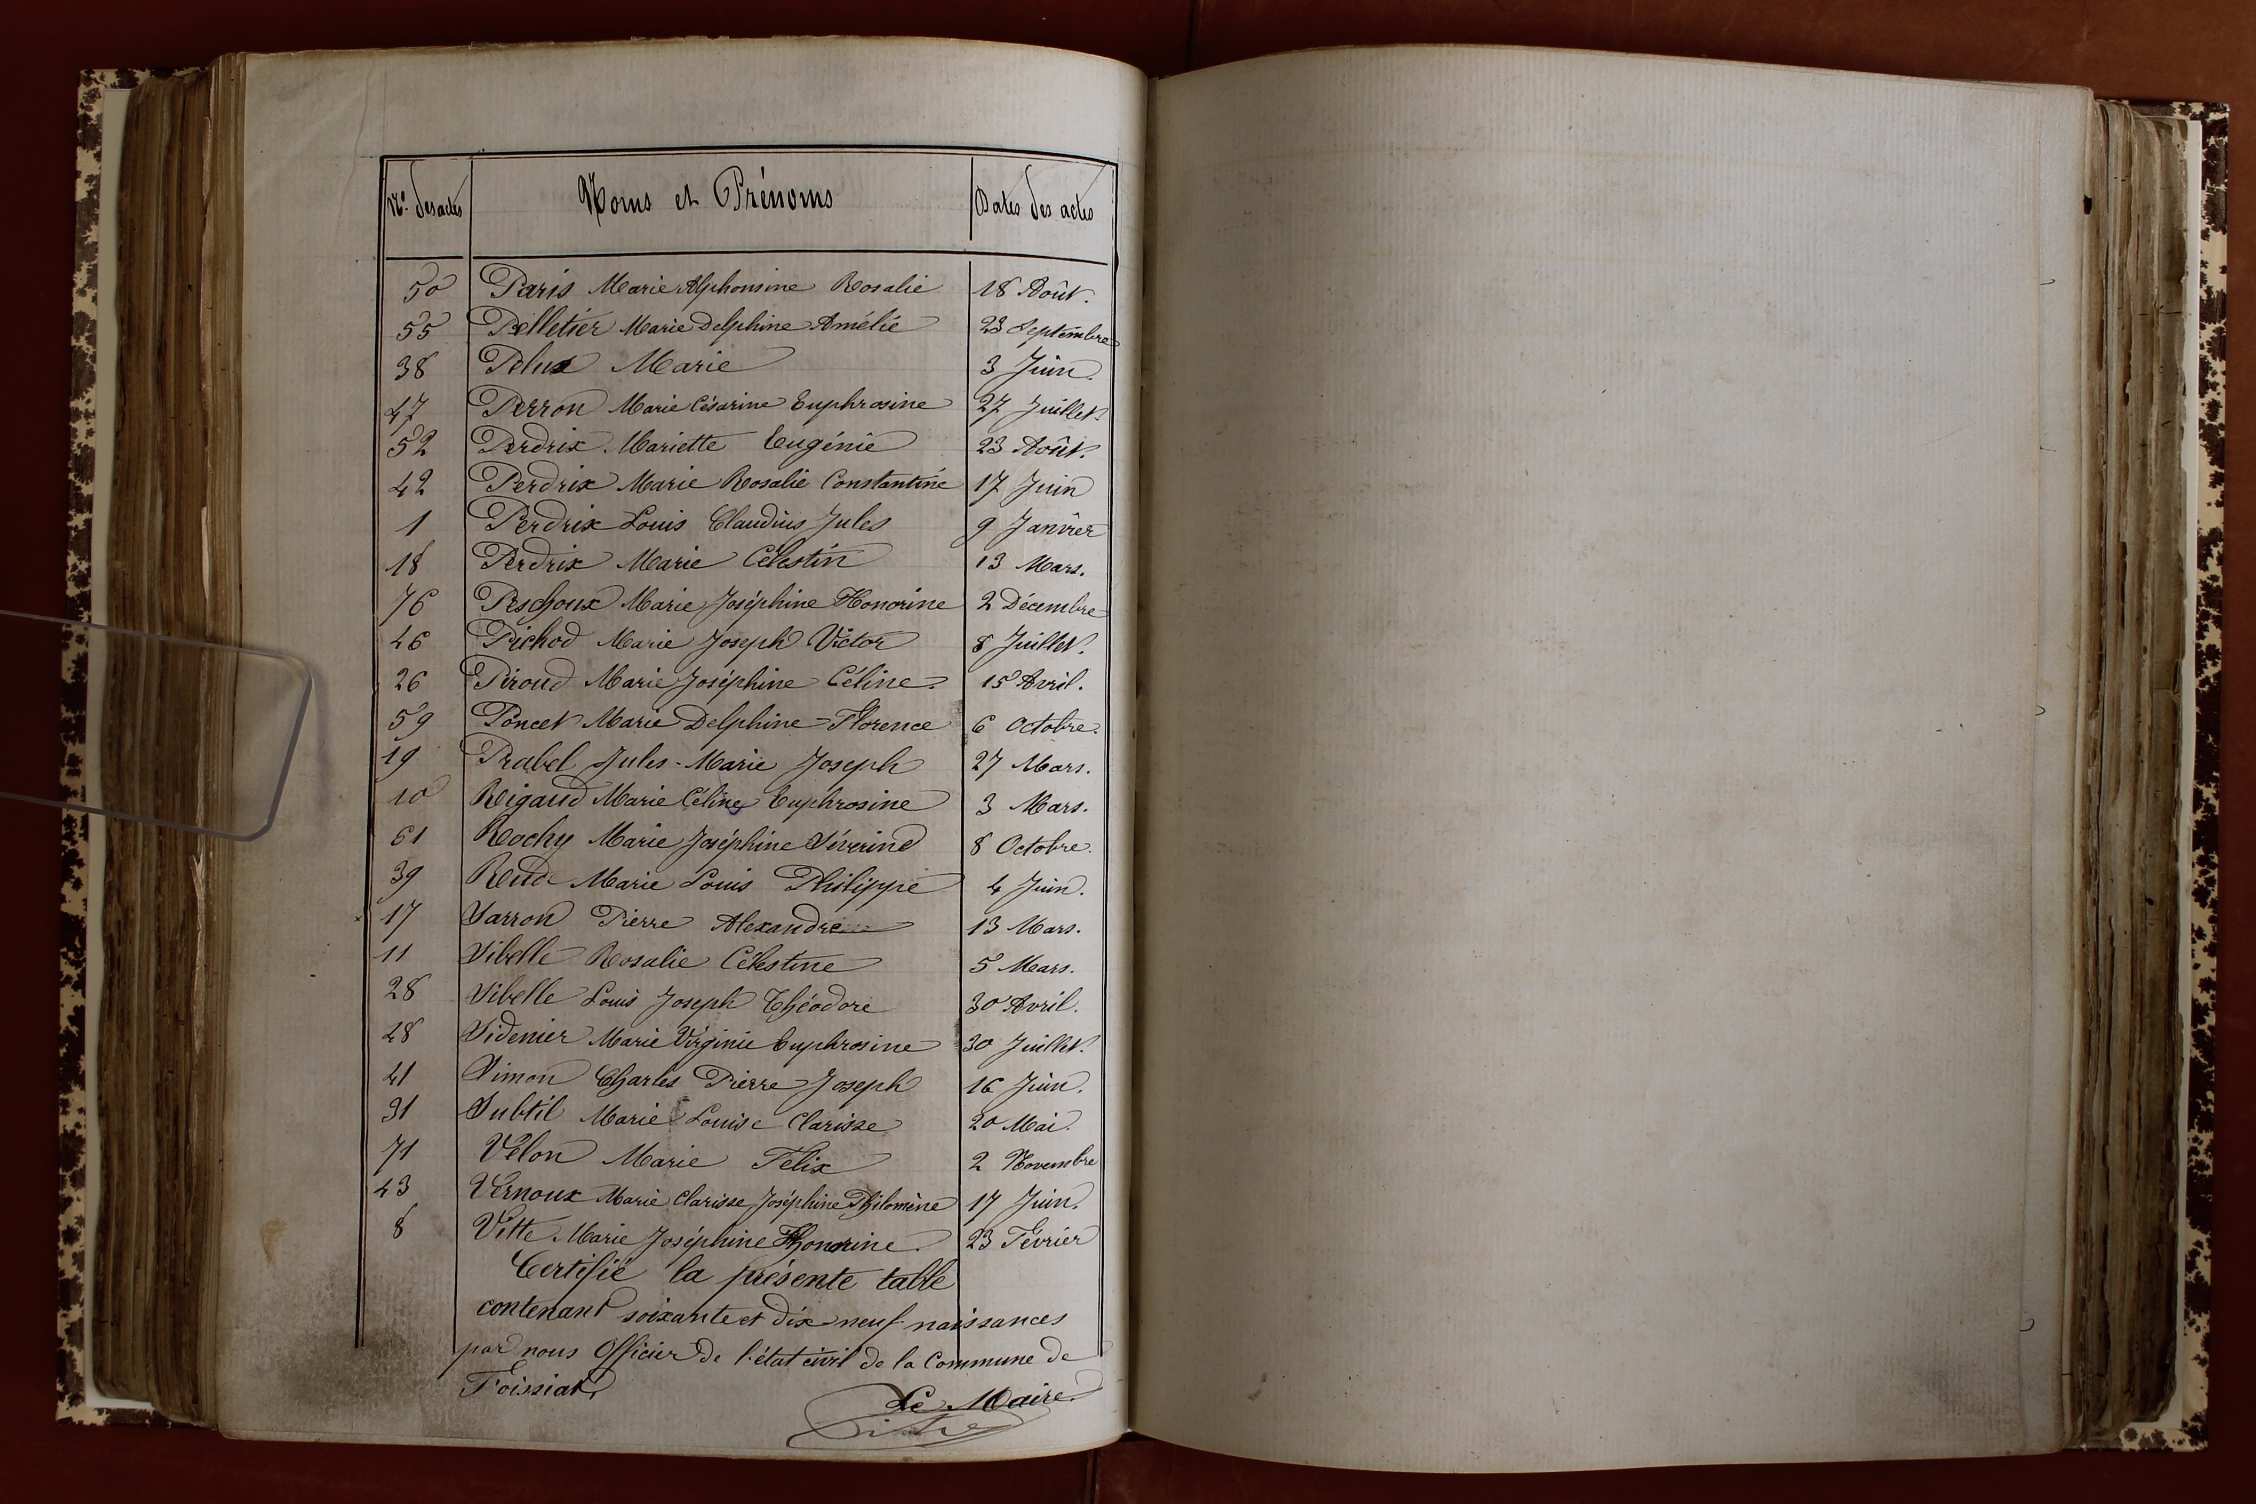 Nos des actes Noms et Prénoms Dates des actes
50 Paris Marie Alphonsine Rosalie 18 Août.
55 Pelletier Marie Delphine Amélie 23 Septembre
38 Pelux Marie 3 Juin.
47 Perron Marie Césarine Euphrosine 27 Juillet.
52 Perdrix Mariette Eugénie 23 Août.
42 Perdrix Marie Rosalie Constantine 17 Juin
1 Perdrix Louis Claudius Jules 9 Janvier
18 Perdrix Marie Célestin 13 Mars.
76 Peschoux Marie Joséphine Honorine 2 Décembre
46 Pichod Marie Joseph Victor 8 Juillet.
26 Piroud Marie Joséphine Céline. 15 Avril.
59 Poncet Marie Delphine Florence 6 Octobre.
19 Prabel Jules-Marie Joseph 27 Mars.
10 Rigaud Marie Céline Euphrosine 3 Mars.
61 Rochy Marie Joséphine Séverine 8 Octobre.
39 Marie Louis Philippe 4 Juin.
17 Sarron Pierre Alexandre 13 Mars.
11 Sibelle Rosalie Célestine 5 Mars.
28 Sibelle Louis Joseph Théodore 30 Avril.
48 Sidenier Marie Virginie Euphrosine 30 Juillet.
41 Simon Charles Pierre Joseph 16 Juin.
31 Subtil Marie Louise Clarisse 20 Mai.
71 Vélon Marie Félix 2 Novembre
43 Vernoux Marie Clarisse Joséphine Philomène 17 Juin.
8 Vitte Marie Joséphine Honorine. 23 Février
Certifié la présente table
contenant soixante et dix neuf naissances
par nous Officier de l'état civil de la Commune de
Foissiat,
Le Maire.